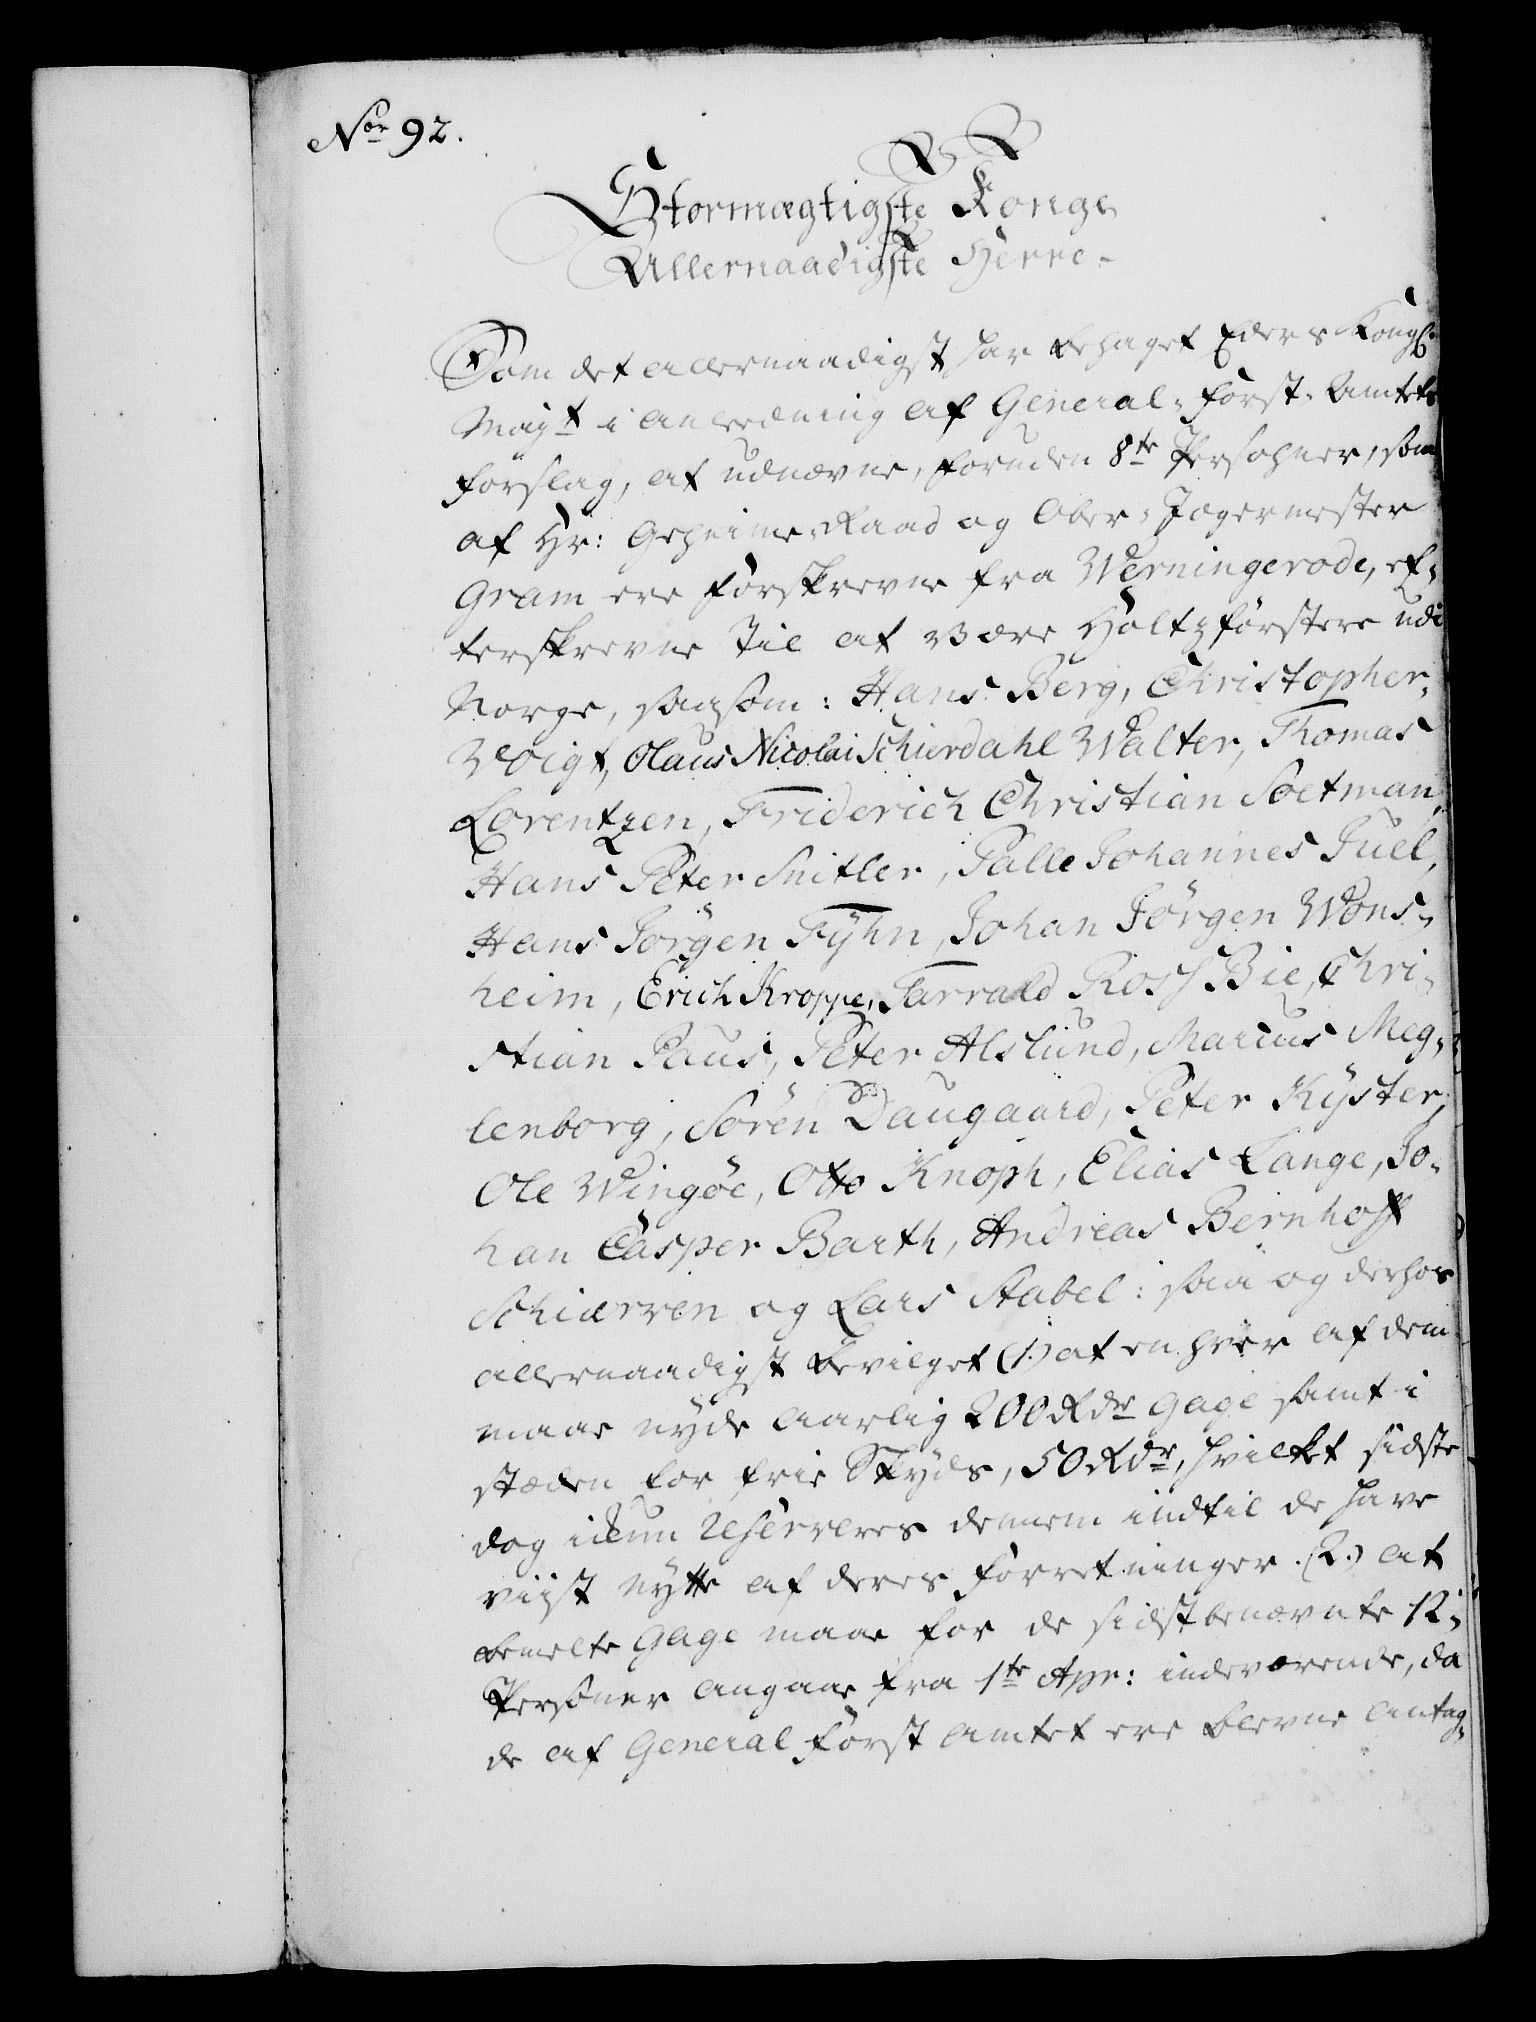 Nor 92.
Stormægtigste Konge
Allernaadigste Herre.
Som det allernaadigst har behaget Eders Kongl.
Mayt i anledning af General-Forst-Amtets
forslag, at udnævne, foruden 8te Persohner, som
af Hr: Geheime-Raad og Ober-Jægermester
Gram ere forskrevne fra Werningerode, ef-
terskrevne til at være Holtzförstere udi
Norge, saasom: Hans Berg, Christopher
Voigt, Olaus Nicolai Schierdahl Walter, Thomas
Lorentzen, Friderich Christian Soetman,
Hans Peter Snitler, Palle Johannes Juel,
Hans Jörgen Fÿhn, Johan Jörgen Wons-
heim, Erich Kroppe, Tarrald Ross Bie, Chri-
stian Paus, Peter Alslund, Marcus Meg-
lenborg, Sören Daugaard, Peter Kÿster,
Ole Wingöe, Otto Knoph, Elias Lange, Jo-
han Casper Barth, Andreas Bernhoft
Schiærven og Lars Stabel: saa og derhos
allernaadigst bevilget (1.) at en hver af dem
maae nyde aarlig 200 Rdr Gage samt i
stæden for frie Skyds, 50 Rdr, hvilket sidste
dog reserveres dennem indtil de have
viist nytte af deres forretninger. (2.) at
bemelte Gage maae for de sidstbenævnte 12
Personer angaae fra 1te Apr: indeværende, da
de af General Forst Amtet ere blevne antag-